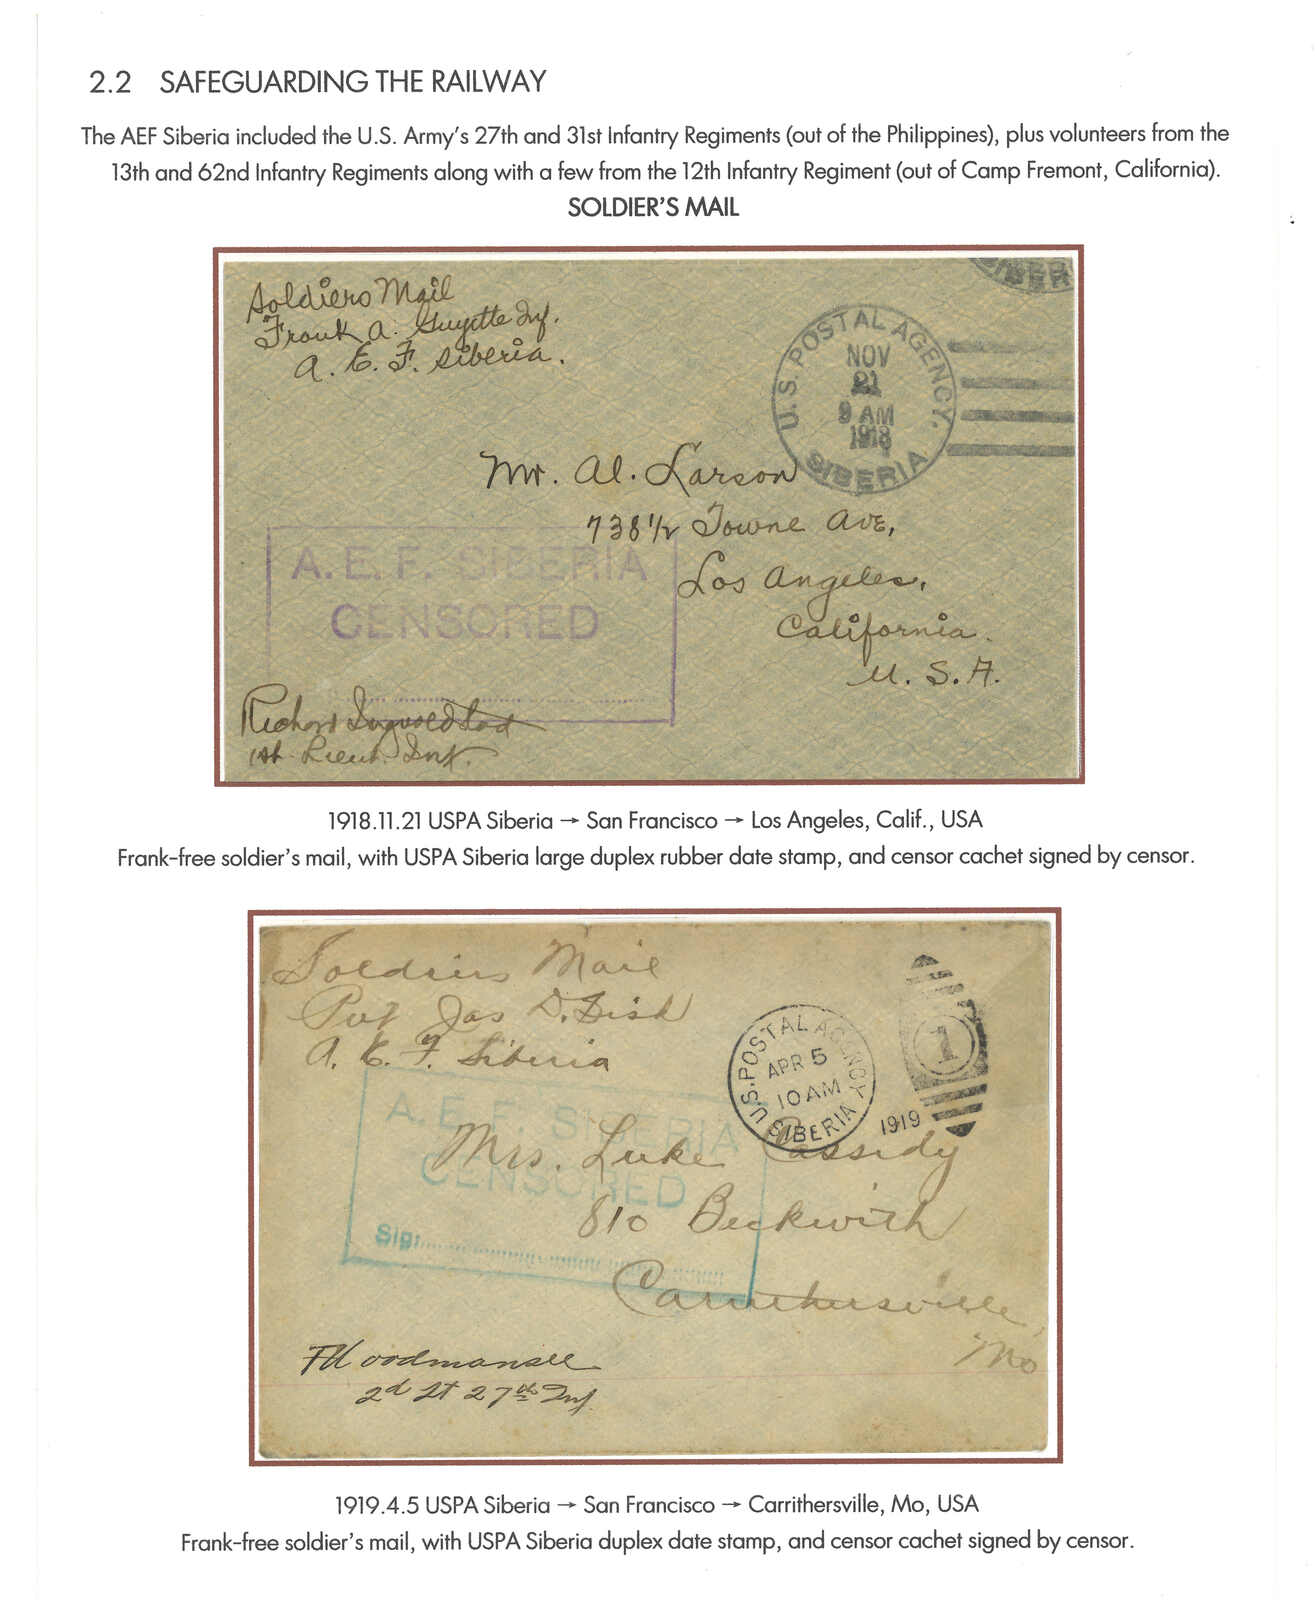 2.2 SAFEGUARDING THE RAILWAY
The AEF Siberia included the U.S. Army's 27th and 31st Infantry Regiments (out of the Philippines), plus volunteers from the
13th and 62nd Infantry Regiments along with a few from the 12th Infantry Regiment (out of Camp Fremont, California).
SOLDIER'S MAIL
SIBERIA
Soldiers Mail
Frank A. Guyette Inf.
A. E. F. Siberia.
U.S. POSTAL AGENCY.
NOV
21
9 AM
1918
SIBERIA
Mr. Al. Larson
738 1/2 Towne Ave,
Los Angeles,
California.
U. S. A.
A. E. F. SIBERIA
CENSORED
Richard
1st Lieut. Inf.
1918.11.21 USPA Siberia → San Francisco → Los Angeles, Calif., USA
Frank-free soldier's mail, with USPA Siberia large duplex rubber date stamp, and censor cachet signed by censor.
Soldiers Mail
Pvt Jas D. Fish
A. E. F. Siberia
U.S. POSTAL AGENCY
APR 5
10 AM
SIBERIA
1919
1
A. E. F. SIBERIA
CENSORED
Sig:
Mrs. Luke Cassidy
810 Beckwith
Carruthersville,
Mo
F Woodmansee
2d Lt 27th Inf.
1919.4.5 USPA Siberia → San Francisco → Carrithersville, Mo, USA
Frank-free soldier's mail, with USPA Siberia duplex date stamp, and censor cachet signed by censor.